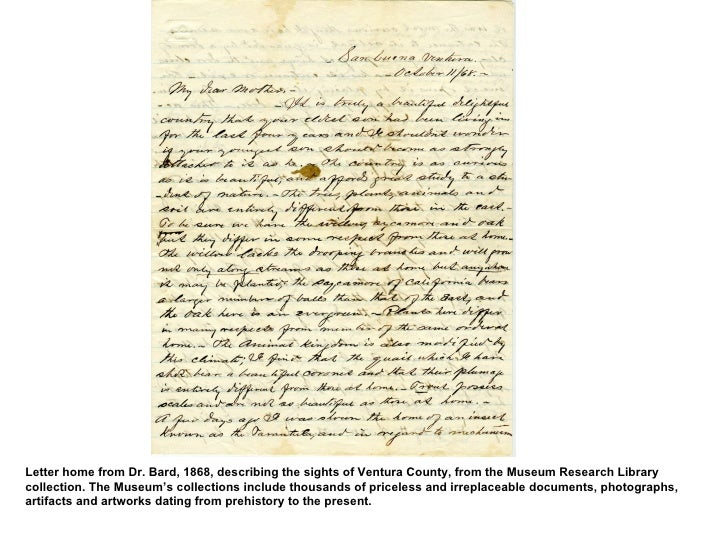 San Buena Ventura.
- October 11/68. -
My Dear Mother, -
- It is truly a beautiful delightful
country that your eldest son had been living in
for the last four years and I shouldn't wonder
if your youngest son should become as strongly
attached to it as he. The country is as curious
as it is beautiful, and affords great study to a stu
-dent of nature. - The trees, plants, animals and
soil are entirely different from those in the east. -
To be sure we have the willow, sycamore and oak
but they differ in some respect from those at home. -
The willow lacks the drooping branches and will grow
not only along streams as those at home but anywhere
it may be planted, the sycamore of California bears
a larger number of balls than that of the East, and
the oak here is an evergreen. - Plants here differ
in many respects from members of the same order at
home. - The Animal kingdom is also modified by
this climate, I find that the quail which I have
shot bear a beautiful coronet and that their plumage
is entirely different from those at home. - Trout possess
scales and are not so beautiful as those at home. -
A few days ago I was shown the home of an insect
known as the Tarantula, and in regard to mechanism
Letter home from Dr. Bard, 1868, describing the sights of Ventura County, from the Museum Research Library
collection. The Museum's collections include thousands of priceless and irreplaceable documents, photographs,
artifacts and artworks dating from prehistory to the present.